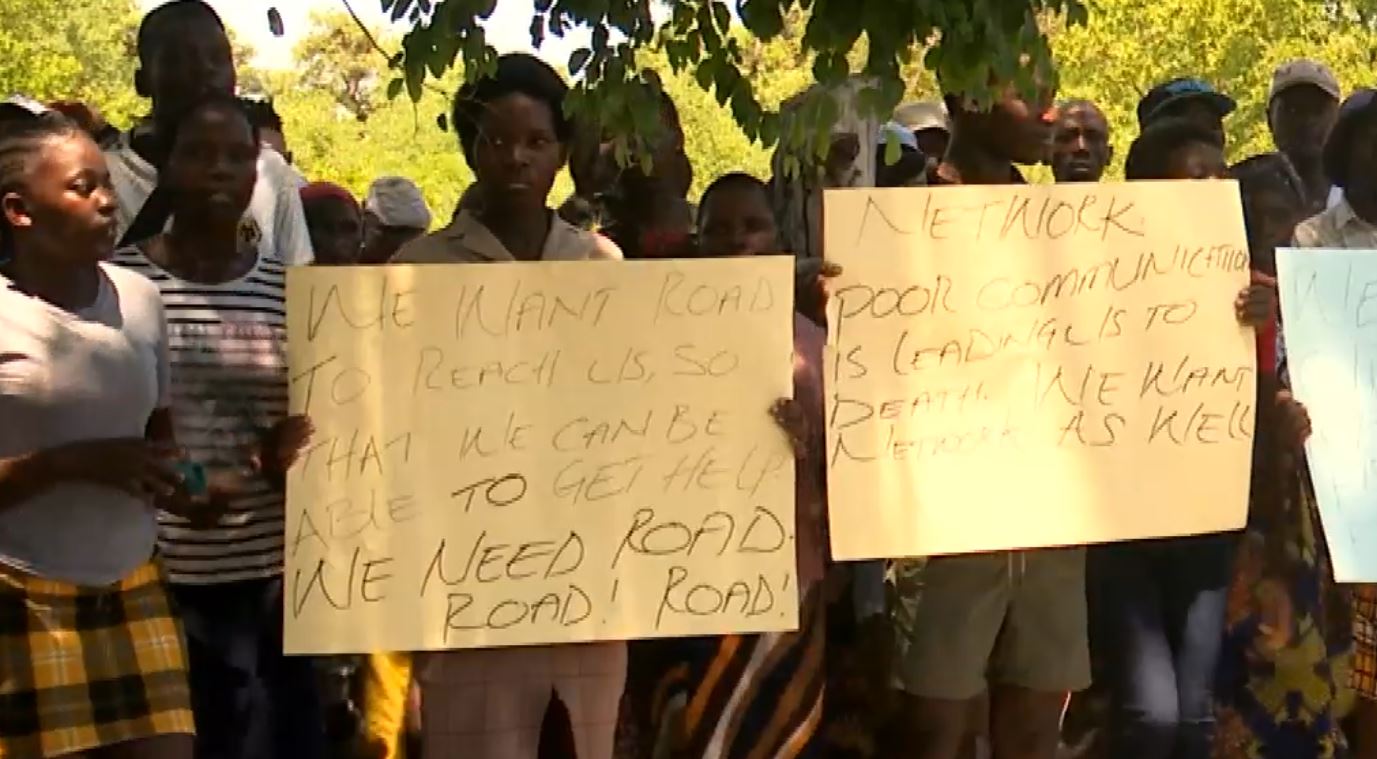 WE WANT ROAD
TO REACH US, SO
THAT WE CAN BE
ABLE TO GET HELP.
WE NEED ROAD.
ROAD! ROAD!
NETWORK.
POOR COMMUNICATION
IS LEADING US TO
DEATH. WE WANT
NETWORK AS WELL
WE